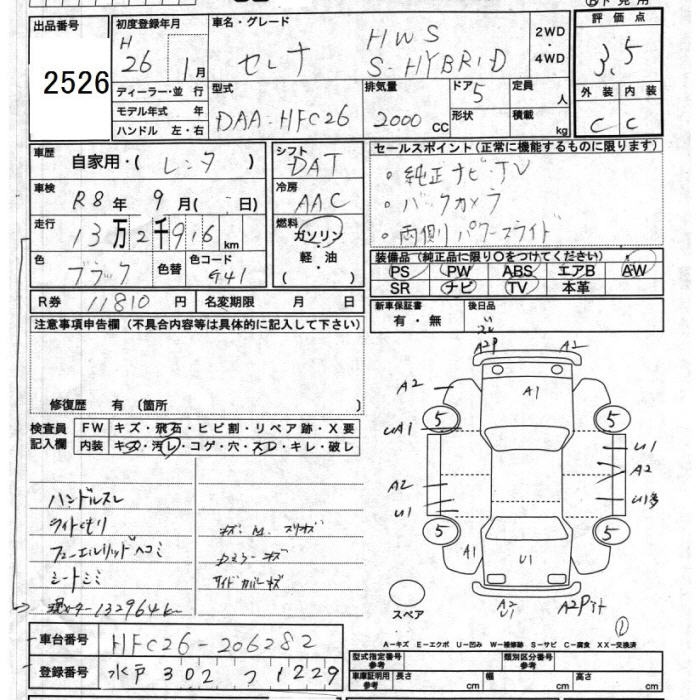 出品番号
2526
初度登録年月
H
26
1月
車名・グレード
セレナ
HWS
S-HYBRID
2WD
・
4WD
評価点
3.5
外装
内装
C
C
ディーラー・並行
モデル年式 年
ハンドル 左・右
型式
DAA-HFC26
排気量
2000cc
ドア
5
形状
定員
人
積載
kg
車歴
自家用・( レンタ )
車検
R8年 9月( 日)
走行
13万2千916km
色
ブラック
色替
色コード
G41
シフト
DAT
冷房
AAC
燃料
ガソリン
・
軽・油
( )
セールスポイント(正常に機能するものに限ります)
・純正ナビ・TV
・バックカメラ
・両側パワースライド
装備品(純正品に限り○をつけてください)
PS PW ABS エアB AW
SR ナビ TV 本革
R券 11810円
名変期限 月 日
新車保証書
有・無
後日品
注意事項申告欄(不具合内容等は具体的に記入して下さい)
修復歴 有 〔箇所 〕
検査員
記入欄
FW キズ・飛石・ヒビ割・リペア跡・X要
内装 キズ・汚レ・コゲ・穴・スレ・キレ・破レ
ハンドルスレ
ライトくもり
フューエルリッドヘコミ
シートシミ
現メーター132964km
キズ・M.スリキズ
Dミラーキズ
サイドカバーキズ
A2P
A2
A2
A1
5
5
UA1
U1
A2
A2
U1
U1多
5
5
A1
U1
スペア
A2
U1
A2P
①
A-キズ E-エクボ U-凹み W-補修跡 S-サビ C-腐食 XX-交換済
車台番号
HFC26-206282
登録番号
水戸 302 つ 1229
型式指定番号
参考
類別区分番号
参考
車庫証明用
参考
長さ cm
幅 cm
高さ cm